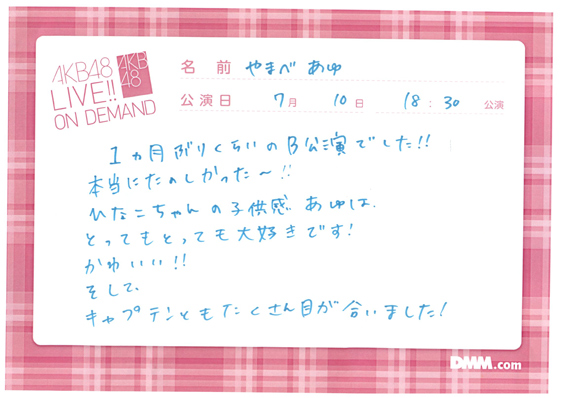 AKB48
LIVE!!
ON DEMAND
AKB
48
名 前 やまべ あゆ
公演日 7月 10日 18:30 公演
1ヵ月ぶりくらいのB公演でした!!
本当にたのしかった〜!!
ひなこちゃんの子供感 あゆは、
とってもとっても大好きです!
かわいい!!
そして、
キャプテンともたくさん目が合いました!
DMM.com